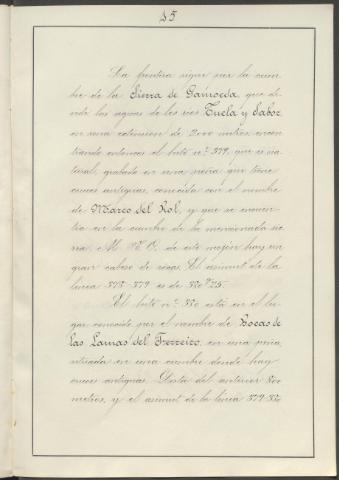 45
La frontera sigue por la cum-
bre de la Sierra de Gamoeda, que di-
vide las aguas de los rios Tuela y Sabor,
en una extensión de 2000 metros, encon-
trando entonces el hito n.º 379, que es na-
tural, grabado en una peña que tiene
cruces antiguas, conocida con el nombre
de Marco del Rol, y que se encuen-
tra en la cumbre de la mencionada sie-
rra. Al N. O. de este mojón hay un
gran cabezo de rocas. El azimut de la
línea 378-379 es de 330º 25'.
El hito n.º 380 está en el lu-
gar conocido por el nombre de Bocas de
las Lamas del Ferreiro, en una peña,
situada en una cumbre donde hay
cruces antiguas. Dista del anterior 800
metros, y el azimut de la línea 379-380